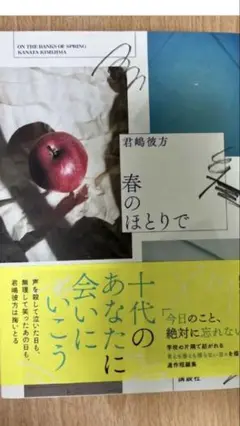 ON THE BANKS OF SPRING
KANATA KIMIJIMA
君嶋彼方
春の
ほとりで
十代の
あなたに
会いに
いこう
声を殺して泣いた日も、
無理して笑ったあの日も、
君嶋彼方は掬いとる
「今日のこと、
絶対に忘れない
学校の片隅で紡がれる
連作短編集
講談社